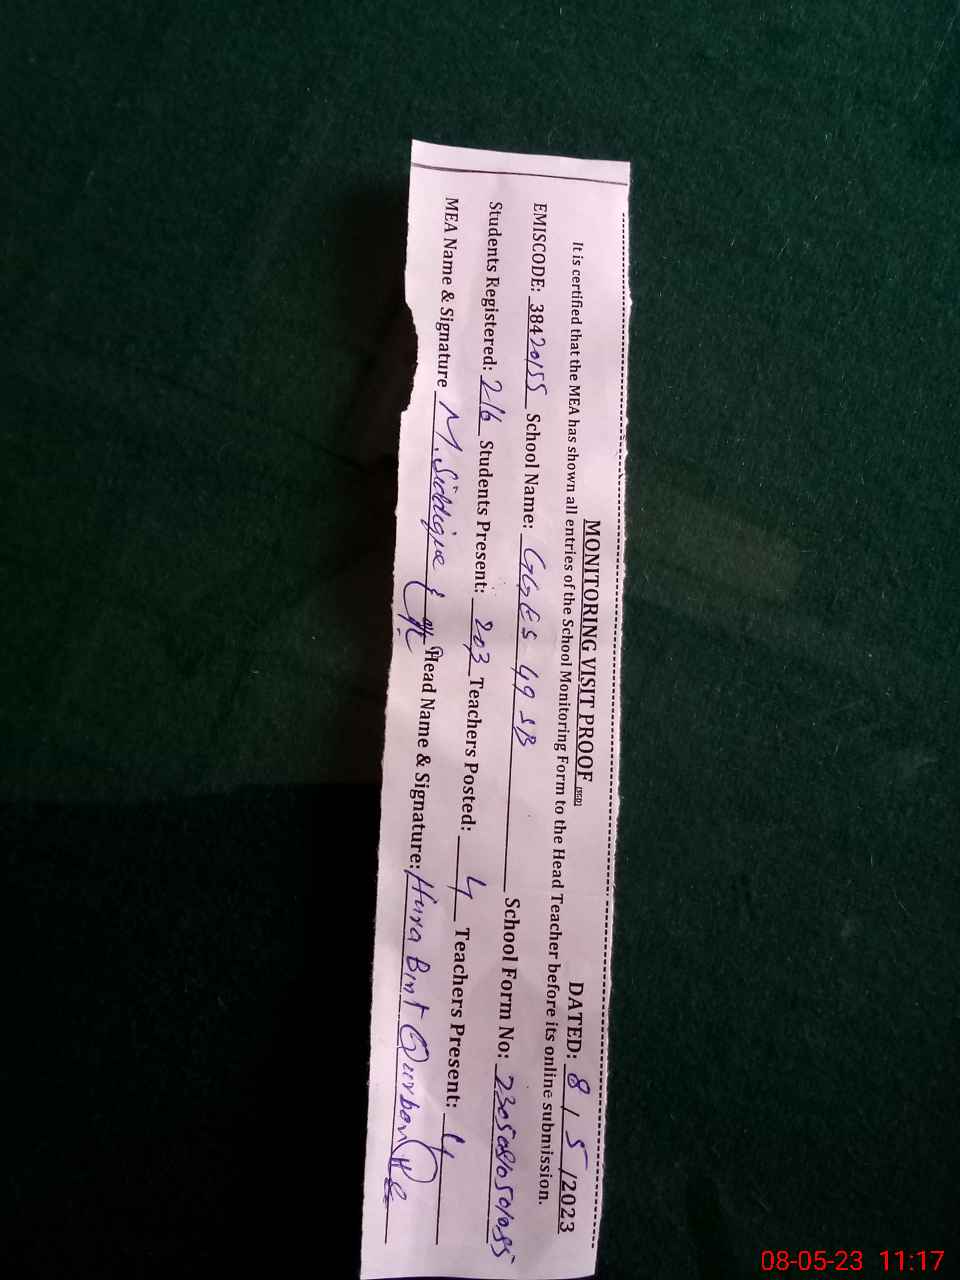 MONITORING VISIT PROOF (SGD) DATED: 8 / 5 /2023
It is certified that the MEA has shown all entries of the School Monitoring Form to the Head Teacher before its online submission.
EMISCODE: 38420155 School Name: GGES 49 SB School Form No:
Students Registered: 216 Students Present: 203 Teachers Posted: 4 Teachers Present: 4
MEA Name & Signature M. Siddique & Head Name & Signature: Hura Bint Qurban
08-05-23 11:17